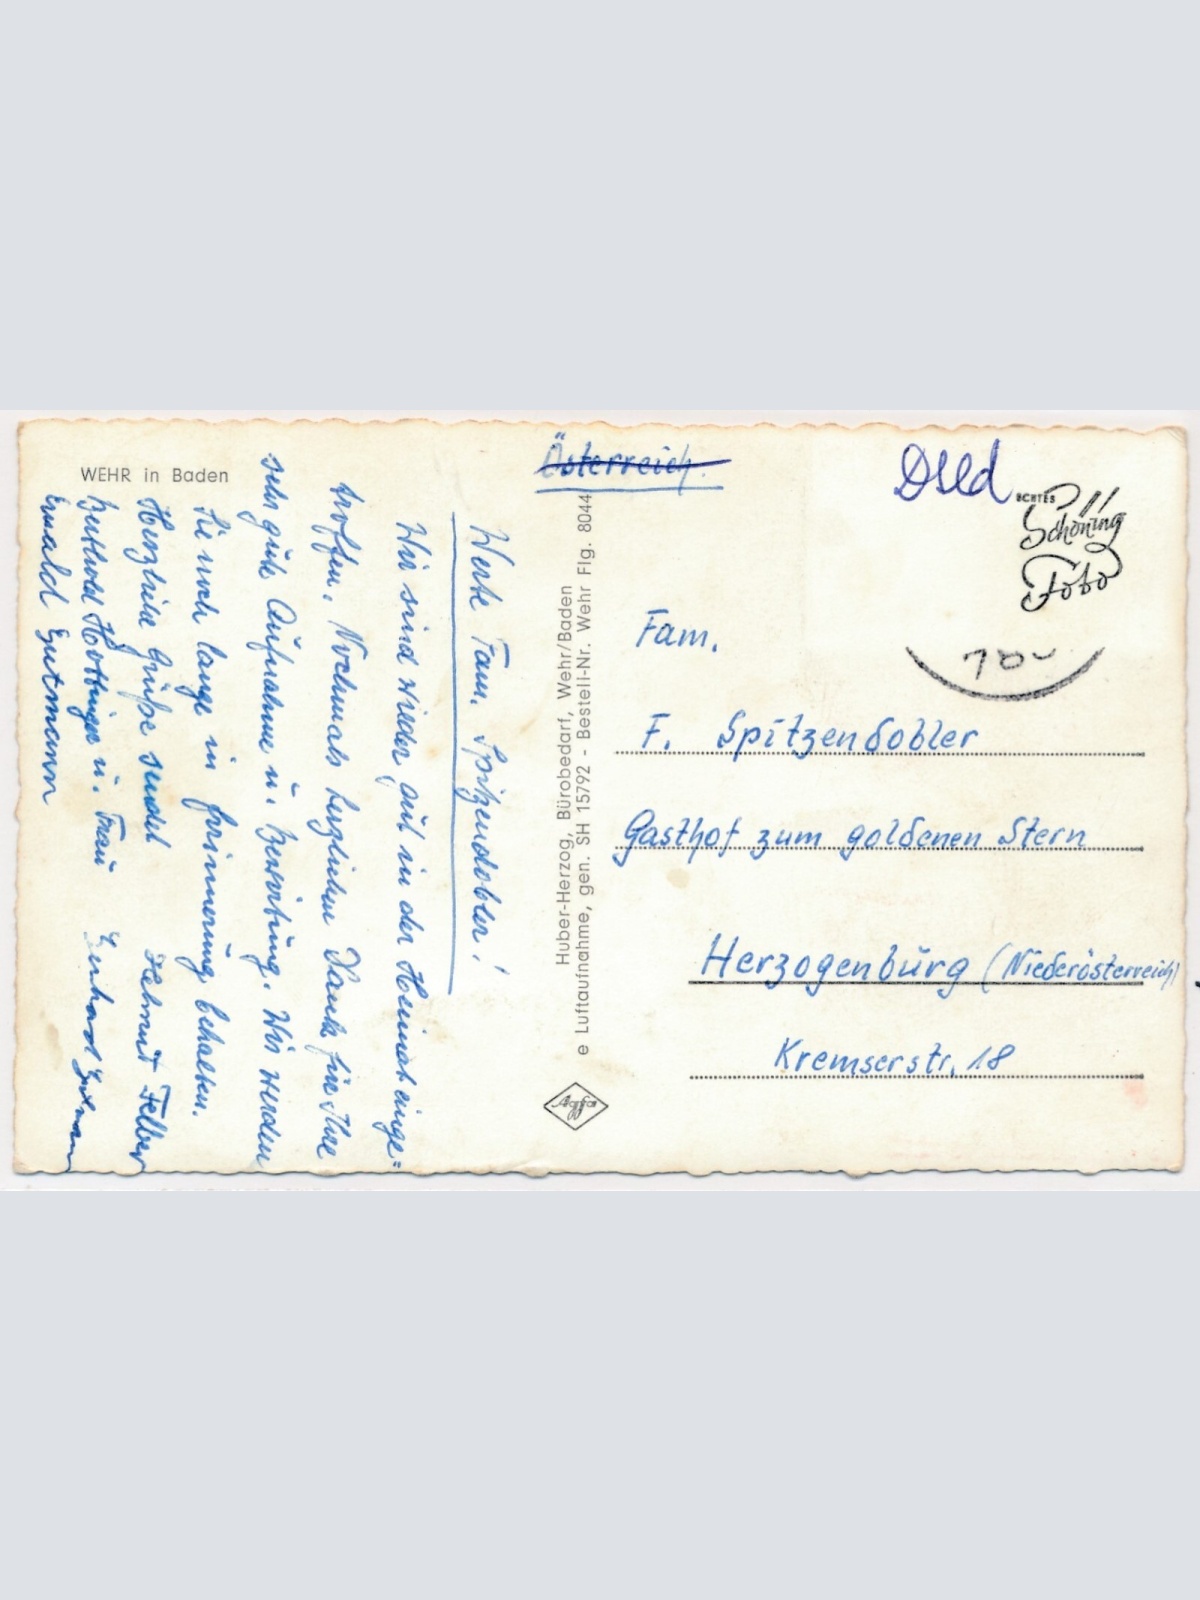 WEHR in Baden
Werte Fam. Spitzendobler!
Wir sind wieder gut in der Heimat einge=
troffen. Nochmals herzlichen Dank für Ihre
sehr gute Aufnahme u. Bewirtung. Wir werden
Sie noch lange in Erinnerung behalten.
Herzliche Grüße sendet Helmut Felber
Berthold Hottinger u. Frau Gerhard Gutmann
Ewald Gutmann
Huber-Herzog, Bürobedarf, Wehr/Baden
e Luftaufnahme, gen. SH 15792 - Bestell-Nr. Wehr Flg. 8044
Agfa
Österreich.
Dsld
ECHTES
Schöning
Foto
70
Fam.
F. Spitzendobler
Gasthof zum goldenen Stern
Herzogenburg (Niederösterreich)
Kremserstr. 18